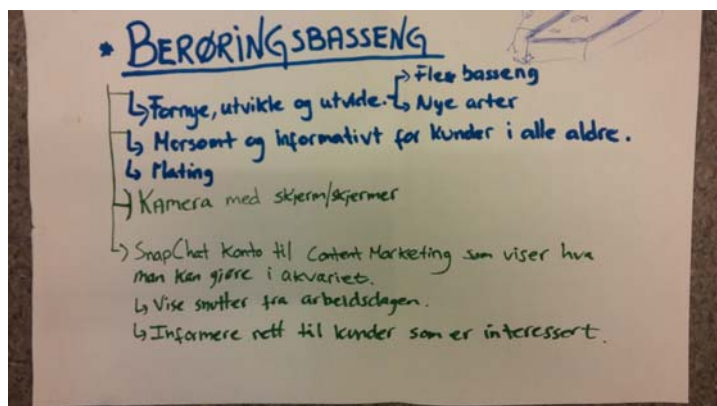 * BERØRINGSBASSENG
↳ Fornye, utvikle og utvide. → Fler basseng
↳ Nye arter
↳ Morsomt og informativt for kunder i alle aldre.
↳ Mating
→ Kamera med skjerm/skjermer
↳ SnapChat konto til Content Marketing som viser hva
man kan gjøre i akvariet.
↳ Vise snutter fra arbeidsdagen.
↳ Informere rett til kunder som er interessert.